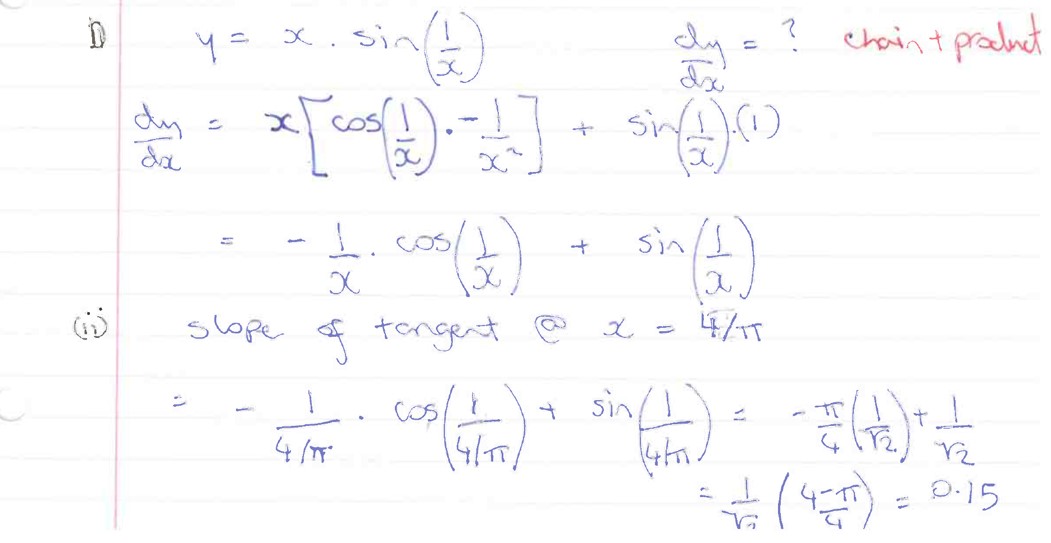 i) y = x . sin(1/x) dy/dx = ? chain + product
dy/dx = x[cos(1/x) . -1/x²] + sin(1/x).(1)
= - 1/x . cos(1/x) + sin(1/x)
(ii) slope of tangent @ x = 4/π
= - 1/(4/π) . cos(1/(4/π)) + sin(1/(4/π)) = -π/4 (1/√2) + 1/√2
= 1/√2 (4-π/4) = 0.15